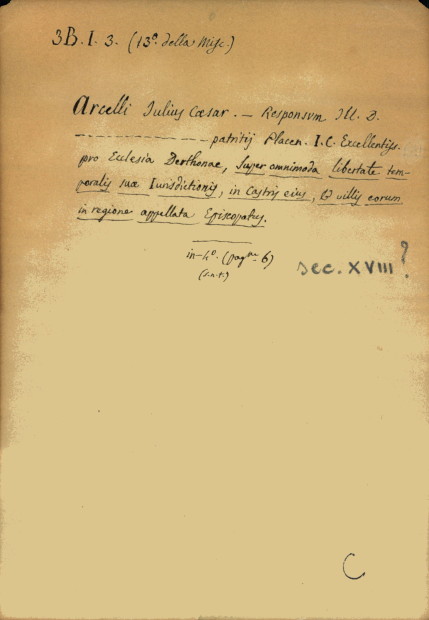 3B. I. 3. (13ª della Misc.)
Arcelli Julius Cæsar. — Responsum Ill. D.
— — — — — — patritij Placen. I. C. Excellentiss.
pro Ecclesia Derthonae, super omnimoda libertate tem-
poralis suæ Iurisdictionis, in Castris eius, & villis eorum
in regione appellata Episcopatus.
in-4º. (pagne 6)
(s.n.t.)
sec. XVIII?
C